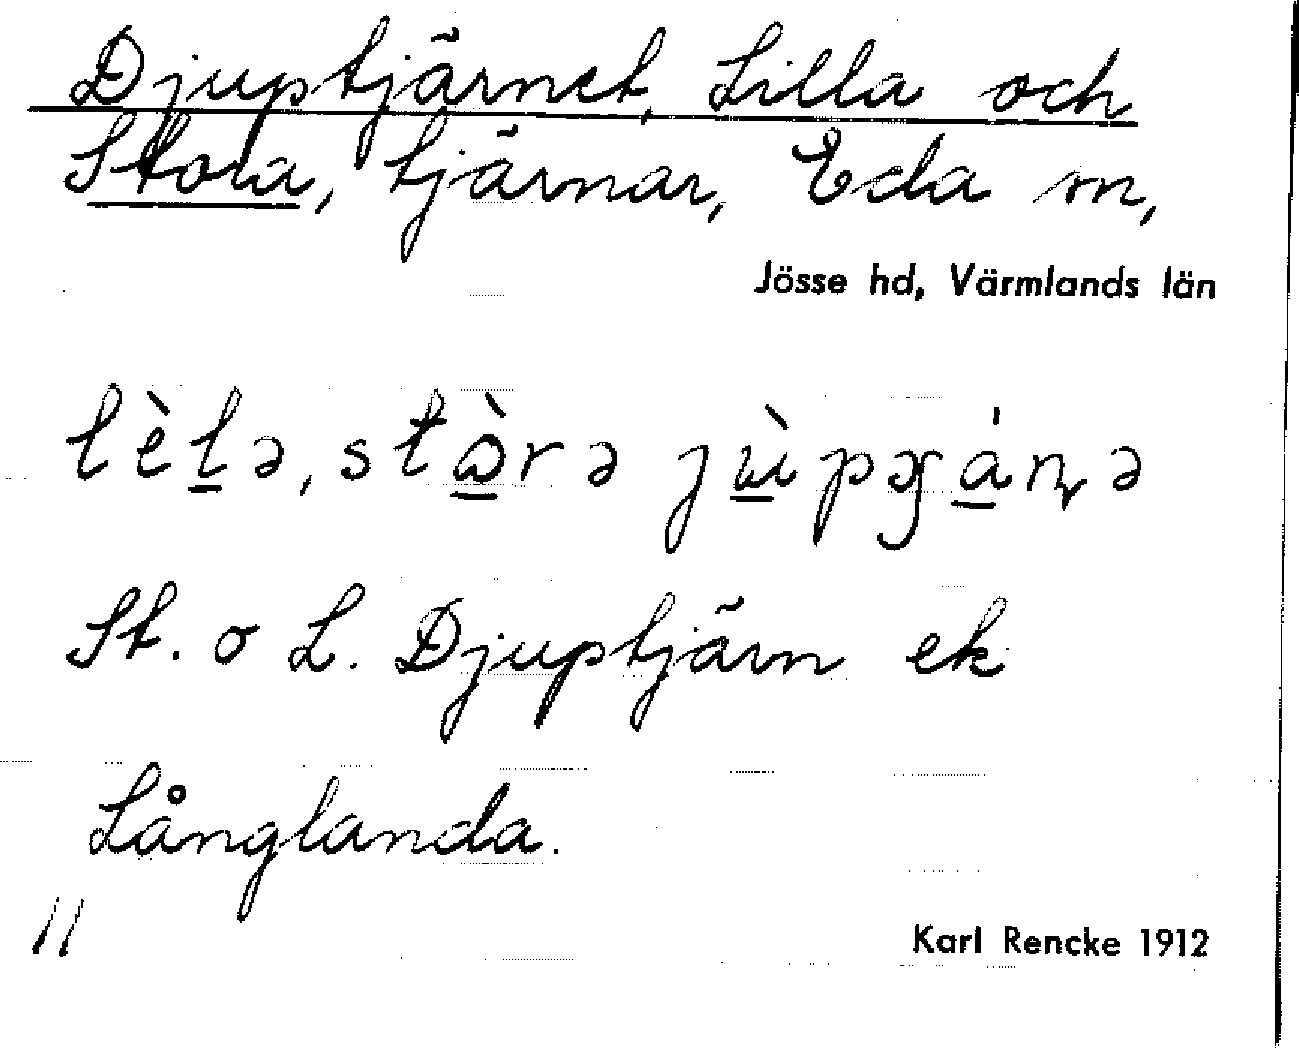 Djuptjärnet, Lilla och
Stora, tjärnar, Eda sn,
Jösse hd, Värmlands län
lèlə, stòrə
St. o L. Djuptjärn ek
Långlanda.
11
Karl Rencke 1912